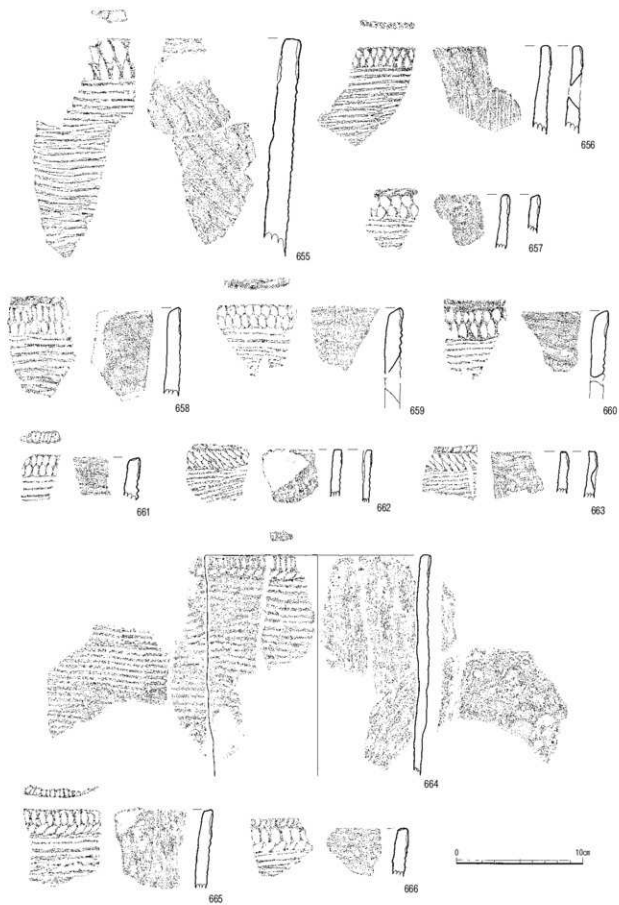 655
656
657
658
659
660
661
662
663
664
665
666
0 10㎝